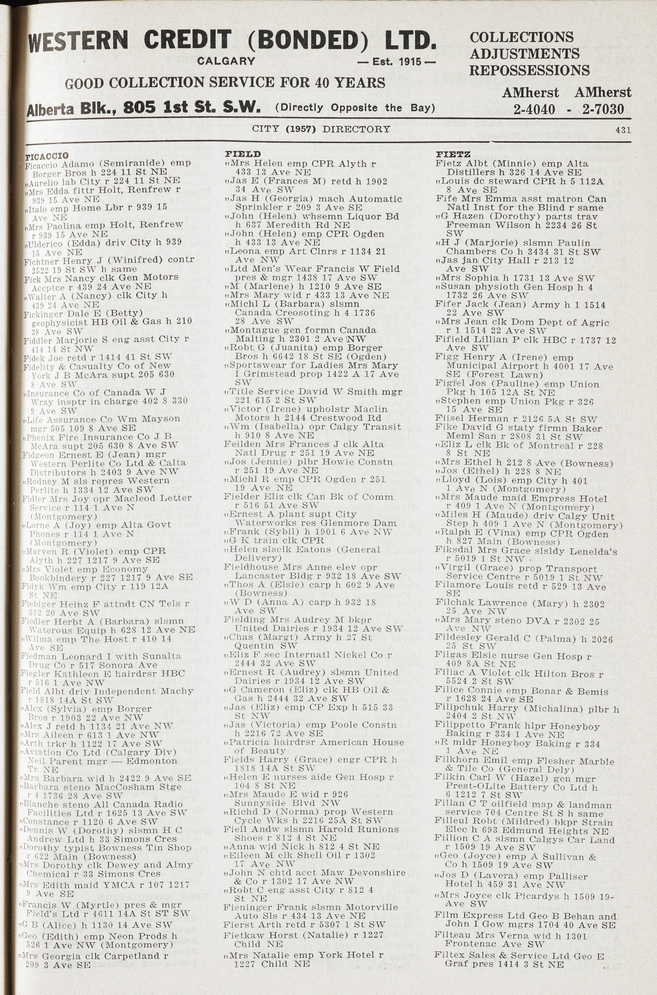 WESTERN CREDIT (BONDED) LTD.
CALGARY — Est. 1915 —
GOOD COLLECTION SERVICE FOR 40 YEARS
Alberta Blk., 805 1st St. S.W. (Directly Opposite the Bay)
COLLECTIONS
ADJUSTMENTS
REPOSSESSIONS
AMherst AMherst
2-4040 - 2-7030
CITY (1957) DIRECTORY 431
FICACCIO
Ficaccio Adamo (Semiranide) emp
Borger Bros h 224 11 St NE
„Aurelio lab City r 224 11 St NE
„Mrs Edda fittr Holt, Renfrew r
939 15 Ave NE
„Italo emp Home Lbr r 939 15
Ave NE
„Mrs Paolina emp Holt, Renfrew
r 939 15 Ave NE
„Ulderico (Edda) driv City h 939
15 Ave NE
Fichtner Henry J (Winifred) contr
2522 19 St SW h same
Fick Mrs Nancy clk Gen Motors
Accptce r 439 24 Ave NE
„Walter A (Nancy) clk City h
439 24 Ave NE
Fickinger Dale E (Betty)
geophysicist HB Oil & Gas h 210
38 Ave SW
Fiddler Marjorie S eng asst City r
414 14 St NW
Fidek Joe retd r 1414 41 St SW
Fidelity & Casualty Co of New
York J B McAra supt 205 630
8 Ave SW
„Insurance Co of Canada W J
Wray insptr in charge 402 8 330
9 Ave SW
„Life Assurance Co Wm Mayson
mgr 505 109 8 Ave SE
„Phenix Fire Insurance Co J B
McAra supt 205 630 8 Ave SW
Fidgeon Ernest E (Jean) mgr
Western Perlite Co Ltd & Calta
Distributors h 2403 9 Ave NW
„Rodney M sls repres Western
Perlite h 1334 12 Ave SW
Fidler Mrs Joy opr Macleod Letter
Service r 114 1 Ave N
(Montgomery)
„Lorne A (Joy) emp Alta Govt
Phones r 114 1 Ave N
(Montgomery)
„Marven R (Violet) emp CPR
Alyth h 227 1217 9 Ave SE
„Mrs Violet emp Economy
Bookbindery r 227 1217 9 Ave SE
Fidyk Wm emp City r 119 12A
St NE
Fiebiger Heinz F attndt CN Tels r
512 20 Ave SW
Fiedler Herbt A (Barbara) slsmn
Waterous Equip h 628 12 Ave NE
„Wilma emp The Host r 410 14
Ave SE
Fiedman Leonard I with Sunalta
Drug Co r 517 Sonora Ave
Fiegler Kathleen E hairdrsr HBC
r 516 1 Ave NW
Field Albt driv Independent Machy
r 1818 14A St SW
„Alex (Sylvia) emp Borger
Bros r 1903 22 Ave NW
„Alex J retd h 1134 21 Ave NW
„Mrs Aileen r 613 1 Ave NW
„Arth trkr h 1122 17 Ave SW
„Aviation Co Ltd (Calgary Div)
Neil Parent mgr — Edmonton
Tr NE
„Mrs Barbara wid h 2422 9 Ave SE
„Barbara steno MacCosham Stge
r 4 1736 28 Ave SW
„Blanche steno All Canada Radio
Facilities Ltd r 1625 13 Ave SW
„Constance r 1120 6 Ave SW
„Dennis W (Dorothy) slsmn H C
Andrew Ltd h 33 Simons Cres
„Dorothy typist Bowness Tin Shop
r 622 Main (Bowness)
„Mrs Dorothy clk Dewey and Almy
Chemical r 33 Simons Cres
„Mrs Edith maid YMCA r 107 1217
9 Ave SE
„Francis W (Myrtle) pres & mgr
Field's Ltd r 4611 14A St ST SW
„G B (Alice) h 1130 14 Ave SW
„Geo (Edith) emp Neon Prods h
526 1 Ave NW (Montgomery)
„Mrs Georgia clk Carpetland r
209 3 Ave SE
FIELD
„Mrs Helen emp CPR Alyth r
433 13 Ave NE
„Jas E (Frances M) retd h 1902
34 Ave SW
„Jas H (Georgia) mach Automatic
Sprinkler r 209 3 Ave SE
„John (Helen) whsemn Liquor Bd
h 637 Meredith Rd NE
„John (Helen) emp CPR Ogden
h 433 13 Ave NE
„Leona emp Art Clnrs r 1134 21
Ave NW
„Ltd Men's Wear Francis W Field
pres & mgr 1438 17 Ave SW
„M (Marlene) h 1210 9 Ave SE
„Mrs Mary wid r 433 13 Ave NE
„Michl L (Barbara) slsmn
Canada Creosoting h 4 1736
28 Ave SW
„Montague gen formn Canada
Malting h 2301 2 Ave NW
„Robt G (Juanita) emp Borger
Bros h 6642 18 St SE (Ogden)
„Sportswear for Ladies Mrs Mary
I Grimstead prop 1422 A 17 Ave
SW
„Title Service David W Smith mgr
221 615 2 St SW
„Victor (Irene) upholstr Maclin
Motors h 2144 Crestwood Rd
„Wm (Isabella) opr Calgy Transit
h 910 8 Ave NE
Feilden Mrs Frances J clk Alta
Natl Drug r 251 19 Ave NE
„Jos (Jennie) plbr Howie Constn
r 251 19 Ave NE
„Michl R emp CPR Ogden r 251
19 Ave NE
Fielder Eliz clk Can Bk of Comm
r 516 51 Ave SW
„Ernest A plant supt City
Waterworks res Glenmore Dam
„Frank (Sybil) h 1901 6 Ave NW
„G K train clk CPR
„Helen slsclk Eatons (General
Delivery)
Fieldhouse Mrs Anne elev opr
Lancaster Bldg r 932 18 Ave SW
„Thos A (Elsie) carp h 602 9 Ave
(Bowness)
„W D (Anna A) carp h 932 18
Ave SW
Fielding Mrs Audrey M bkpr
United Dairies r 1934 12 Ave SW
„Chas (Margt) Army h 27 St
Quentin SW
„Eliz F sec Internatl Nickel Co r
2444 32 Ave SW
„Ernest R (Audrey) slsmn United
Dairies r 1934 12 Ave SW
„G Cameron (Eliz) clk HB Oil &
Gas h 2444 32 Ave SW
„Jas (Eliz) emp CP Exp h 515 33
St NW
„Jas (Victoria) emp Poole Constn
h 2216 72 Ave SE
„Patricia hairdrsr American House
of Beauty
Fields Harry (Grace) engr CPR h
1818 14A St SW
„Helen E nurses aide Gen Hosp r
104 8 St NE
„Mrs Maude E wid r 926
Sunnyside Blvd NW
„Richd D (Norma) prop Western
Cycle Wks h 2216 25A St SW
Fiell Andw slsmn Harold Runions
Shoes r 812 4 St NE
„Anna wid Nick h 812 4 St NE
„Eileen M clk Shell Oil r 1302
17 Ave NW
„John N chtd acct Maw Devonshire
& Co r 1302 17 Ave NW
„Robt C eng asst City r 812 4
St NE
Fieninger Frank slsmn Motorville
Auto Sls r 434 13 Ave NE
Fierst Arth retd r 5307 1 St SW
Fietkaw Horst (Natalie) r 1227
Child NE
„Mrs Natalie emp York Hotel r
1227 Child NE
FIETZ
Fietz Albt (Minnie) emp Alta
Distillers h 326 14 Ave SE
„Louis dc steward CPR h 5 112A
8 Ave SE
Fife Mrs Emma asst matron Can
Natl Inst for the Blind r same
„G Hazen (Dorothy) parts trav
Freeman Wilson h 2234 26 St
SW
„H J (Marjorie) slsmn Paulin
Chambers Co h 3434 31 St SW
„Jas jan City Hall r 213 12
Ave SW
„Mrs Sophia h 1731 13 Ave SW
„Susan physioth Gen Hosp h 4
1732 26 Ave SW
Fifer Jack (Jean) Army h 1 1514
22 Ave SW
„Mrs Jean clk Dom Dept of Agric
r 1 1514 22 Ave SW
Fifield Lillian P clk HBC r 1737 12
Ave SW
Figg Henry A (Irene) emp
Municipal Airport h 4001 17 Ave
SE (Forest Lawn)
Figfel Jos (Pauline) emp Union
Pkg h 105 12A St NE
„Stephen emp Union Pkg r 326
15 Ave SE
Fiisel Herman r 2126 5A St SW
Fike David G staty firmn Baker
Meml San r 2808 31 St SW
„Eliz L clk Bk of Montreal r 228
8 St NE
„Mrs Ethel h 212 8 Ave (Bowness)
„Jos (Ethel) h 228 8 NE
„Lloyd (Lois) emp City h 401
1 Ave N (Montgomery)
„Mrs Maude maid Empress Hotel
r 409 1 Ave N (Montgomery)
„Miles H (Maude) driv Calgy Unit
Step h 409 1 Ave N (Montgomery)
„Ralph E (Vina) emp CPR Ogden
h 827 Main (Bowness)
Fiksdal Mrs Grace slsldy Lenelda's
r 5019 1 St NW
„Virgil (Grace) prop Transport
Service Centre r 5019 1 St NW
Filamore Louis retd r 529 13 Ave
SE
Filchak Lawrence (Mary) h 2302
25 Ave NW
„Mrs Mary steno DVA r 2302 25
Ave NW
Fildesley Gerald C (Palma) h 2026
25 St SW
Filgas Elsie nurse Gen Hosp r
409 8A St NE
Filiac A Violet clk Hilton Bros r
5524 2 St SW
Filice Connie emp Bonar & Bemis
r 1628 24 Ave SE
Filipchuk Harry (Michalina) plbr h
2404 2 St NW
Filippetto Frank hlpr Honeyboy
Baking r 334 1 Ave NE
„R mldr Honeyboy Baking r 334
1 Ave NE
Filkhorn Emil emp Flesher Marble
& Tile Co (General Dely)
Filkin Carl W (Hazel) gen mgr
Prest-OLite Battery Co Ltd h
6 1212 7 St SW
Fillan C T oilfield map & landman
service 704 Centre St S h same
Filleul Robt (Mildred) bkpr Strain
Elec h 693 Edmund Heights NE
Fillion C A slsmn Calgys Car Land
r 1509 19 Ave SW
„Geo (Joyce) emp A Sullivan &
Co h 1509 19 Ave SW
„Jos D (Lavera) emp Palliser
Hotel h 459 31 Ave NW
„Mrs Joyce clk Picardys h 1509 19-
Ave SW
Film Express Ltd Geo B Behan and
John I Gow mgrs 1704 40 Ave SE
Filteau Mrs Verna wid h 1301
Frontenac Ave SW
Filtex Sales & Service Ltd Geo E
Graf pres 1414 3 St NE